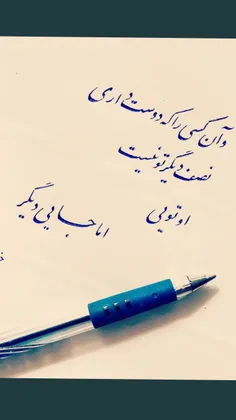 و آن کسی را که دوست داری
نصف دیگر تو نیست
او تویی
اما جایی دیگر